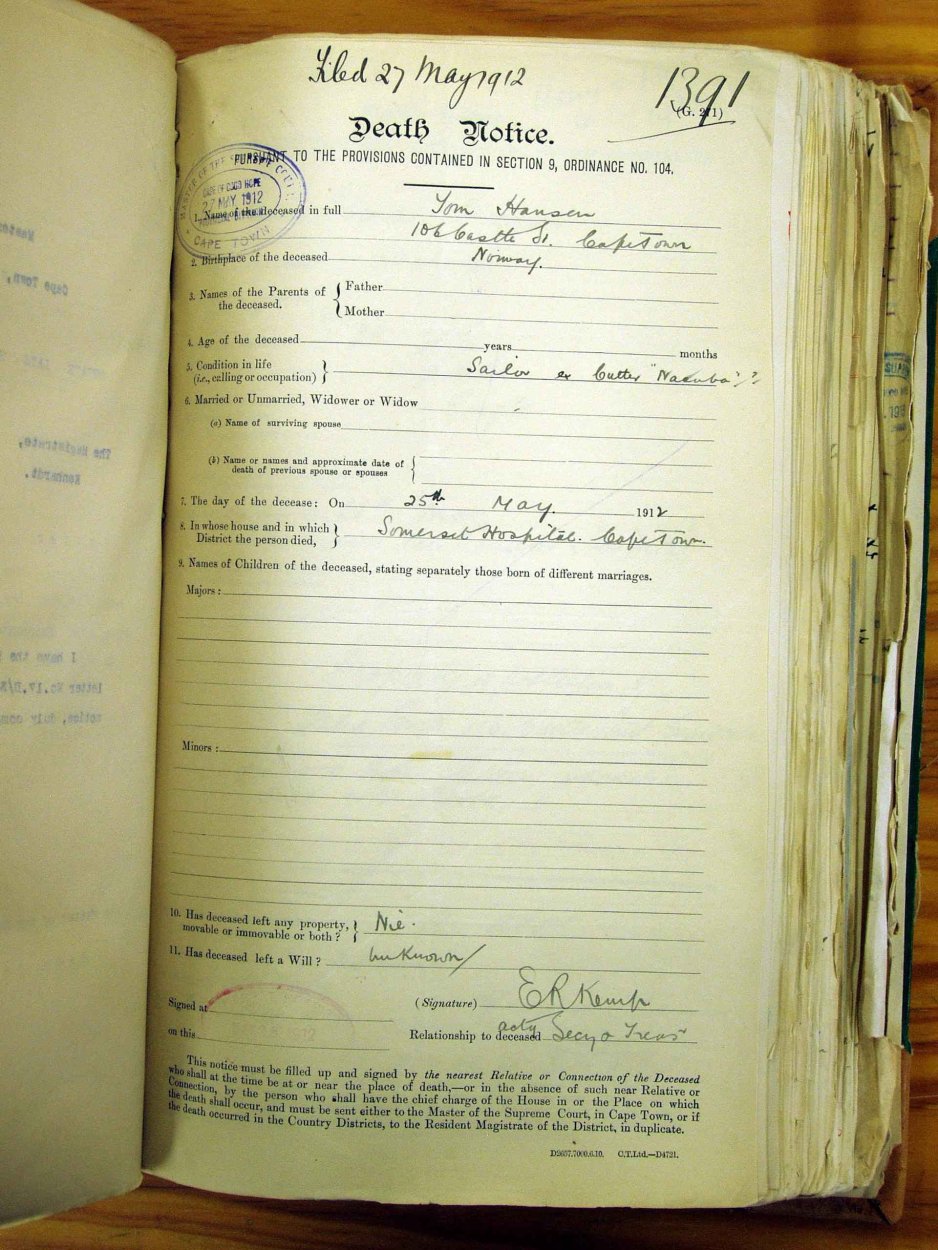 Filed 27 May 1912
1391
(G. 271)
Death Notice.
PURSUANT TO THE PROVISIONS CONTAINED IN SECTION 9, ORDINANCE NO. 104.
MASTER OF THE SUPREME COURT
CAPE OF GOOD HOPE
27 MAY 1912
CAPE TOWN
1. Name of the deceased in full Tom Hansen
106 Castle St. Cape Town
2. Birthplace of the deceased Norway.
3. Names of the Parents of the deceased. { Father
Mother
4. Age of the deceased years months
5. Condition in life (i.e., calling or occupation) } Sailor ex Cutter "Nacuba"??
6. Married or Unmarried, Widower or Widow
(a) Name of surviving spouse
(b) Name or names and approximate date of death of previous spouse or spouses {
7. The day of the decease: On 25th May. 1912
8. In whose house and in which District the person died, } Somerset Hospital. Cape Town.
9. Names of Children of the deceased, stating separately those born of different marriages.
Majors:
Minors:
10. Has deceased left any property, movable or immovable or both? } Nil.
11. Has deceased left a Will? unknown
Signed at
(Signature) E R Kemp
on this
Relationship to deceased actg Secy & Treas
This notice must be filled up and signed by the nearest Relative or Connection of the Deceased
who shall at the time be at or near the place of death,—or in the absence of such near Relative or
Connection, by the person who shall have the chief charge of the House in or the Place on which
the death shall occur, and must be sent either to the Master of the Supreme Court, in Cape Town, or if
the death occurred in the Country Districts, to the Resident Magistrate of the District, in duplicate.
D2657.7000.6.10. C.T.Ltd.—D4721.
Cape Town,
The Magistrate,
Kenhardt.
I have the